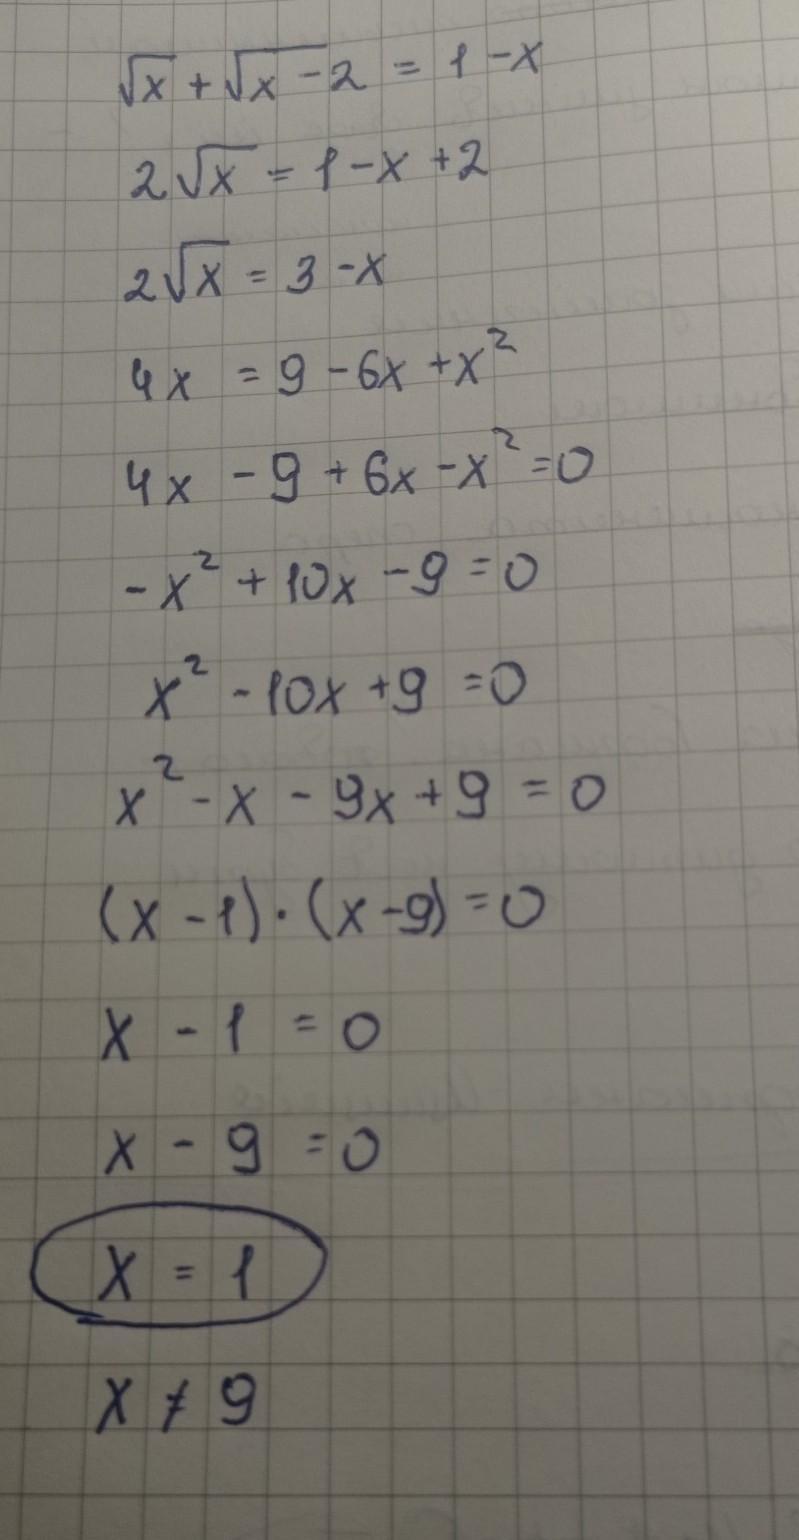 √x + √x - 2 = 1 - x
2√x = 1 - x + 2
2√x = 3 - x
4x = 9 - 6x + x²
4x - 9 + 6x - x² = 0
-x² + 10x - 9 = 0
x² - 10x + 9 = 0
x² - x - 9x + 9 = 0
(x - 1) · (x - 9) = 0
x - 1 = 0
x - 9 = 0
x = 1
x ≠ 9